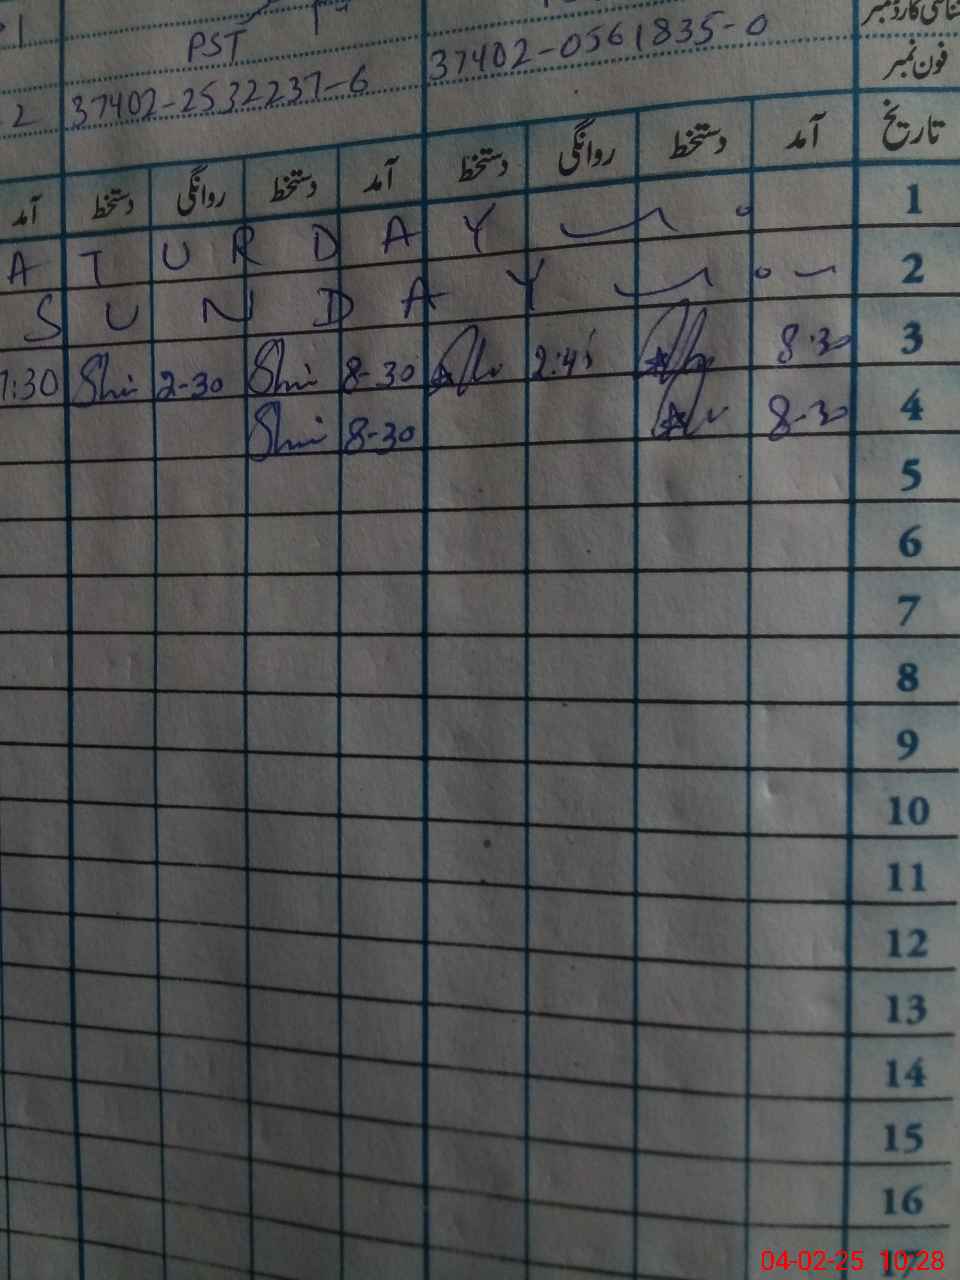 شناختی کارڈ نمبر 37402-0561835-0 PST
فون نمبر 37402-2532237-6 2
تاریخ آمد دستخط روانگی دستخط آمد دستخط روانگی دستخط آمد
1 A T U R D A Y
2 S U N D A Y
3 8:30 2:45 8-30 2-30 7:30
4 8-30 8-30
5
6
7
8
9
10
11
12
13
14
15
16
17
04-02-25 10:28